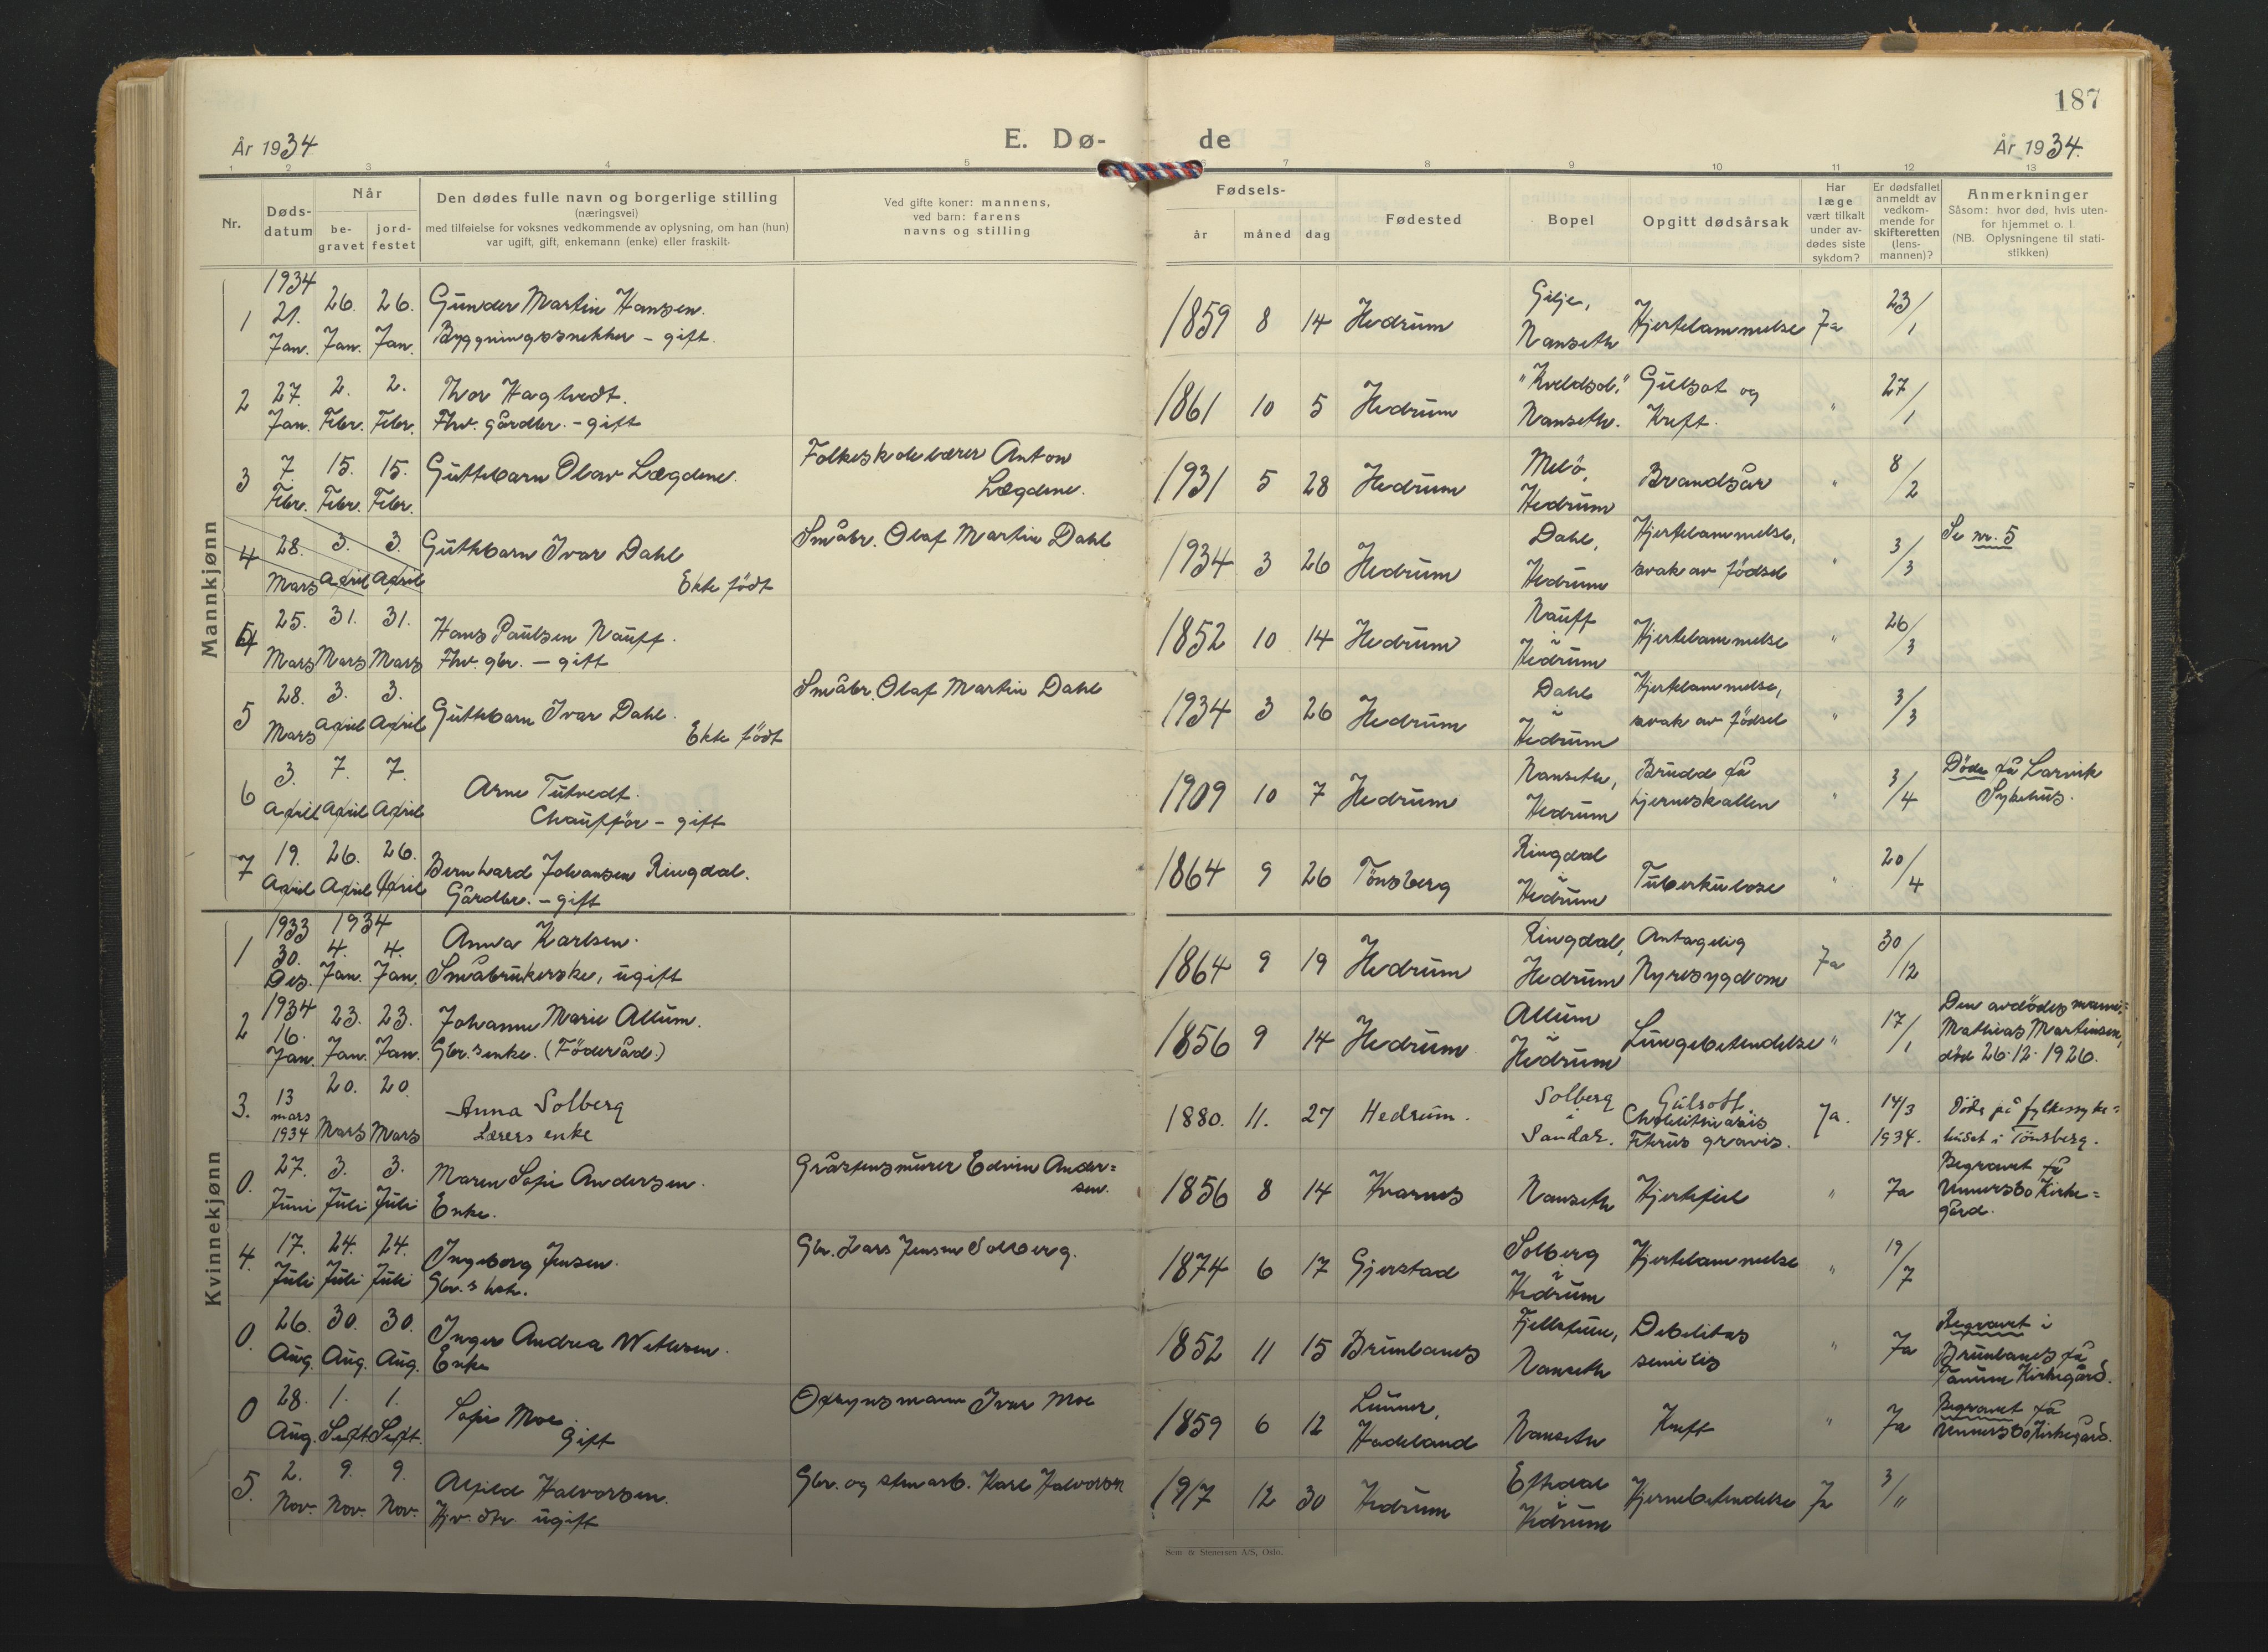 187
År 1934
E. Dø-
de
År 1934.
1 2 3 4 5 6 7 8 9 10 11 12 13
Nr.
Døds-
datum
Når
be-
gravet
jord-
festet
Den dødes fulle navn og borgerlige stilling
(næringsvei)
med tilføielse for voksnes vedkommende av oplysning, om han (hun)
var ugift, gift, enkemann (enke) eller fraskilt.
Ved gifte koner: mannens,
ved barn: farens
navns og stilling
Fødsels-
år måned dag
Fødested
Bopel
Opgitt dødsårsak
Har
læge
vært tilkalt
under av-
dødes siste
sykdom?
Er dødsfallet
anmeldt av
vedkom-
mende for
skifteretten
(lens-
mannen)?
Anmerkninger
Såsom: hvor død, hvis uten-
for hjemmet o. l.
(NB. Oplysningene til stati-
stikken)
Mannkjønn
1
1934
21. 26. 26. Gunder Martin Hansen.
Jan. Jan. Jan. Bygningssnekker - gift.
1859 8 14 Hedrum
Gilje,
Nanseth
Hjertelammelse Ja 23/1
2
27. 2. 2. Thor Hagtvedt.
Jan. Febr. Febr. Fhv. gårdbr. - gift
1861 10 5 Hedrum
"Kveldsol."
Nanseth.
Gulsot og
Kreft.
" 27/1
3
7. 15. 15. Guttebarn Olav Lægdene.
Febr. Febr. Febr.
Folkeskolelærer Anton
Lægdene.
1931 5 28 Hedrum
Melö,
Hedrum
Brandsår " 8/2
4
28. 3. 3. Guttebarn Ivar Dahl
Mars April April
Ekte födt
Småbr. Olaf Martin Dahl
1934 3 26 Hedrum
Dahl,
Hedrum
Hjertelammelse,
svak av födsel
" 3/3
Se nr. 5
4
25. 31. 31. Hans Paulsen Nauff.
Mars Mars Mars Fhv. gbr. - gift
1852 10 14 Hedrum
Nauff
i
Hedrum
Hjertelammelse " 26/3
5
28. 3. 3. Guttebarn Ivar Dahl.
Mars April April
Ekte födt
Småbr. Olaf Martin Dahl
1934 3 26 Hedrum
Dahl
i
Hedrum
Hjertelammelse,
svak av födsel
" 3/3
6
3. 7. 7. Arne Tutvedt.
April April April Chaufför - gift
1909 10 7 Hedrum
Nanseth,
Hedrum
Brudd på
hjerneskallen
" 3/4
Döde på Larvik
Sykehus.
7
19. 26. 26. Bernhard Johansen Ringdal.
April April April Gårdbr. - gift
1864 9 26 Tönsberg
Ringdal
i
Hedrum
Tuberkulose " 20/4
Kvinnekjønn
1
1933 1934
30. 4. 4. Anna Karlsen.
Des. Jan. Jan. Småbrukerske, ugift
1864 9 19 Hedrum
Ringdal,
Hedrum
Antagelig
Nyresygdom
Ja 30/12
2
1934
16. 23. 23. Johanne Marie Allum.
Jan. Jan. Jan. Gbr.s enke. (Föderåd.)
1856 9 14 Hedrum
Allum
i
Hedrum
Lungebetendelse " 17/1
Den avdödes mann,
Mathias Martinsen,
död 26.12.1926.
3.
13 20. 20. Anna Solberg
mars
1934 Mars Mars Lærers enke
1880. 11. 27 Hedrum.
Solberg
i
Sandar.
Gulsott.
gravis.
Ja. 14/3
1934.
Döde på fylkessyke=
huset i Tönsberg.
0.
27. 3. 3. Maren Sofie Andersen.
Juni Juli Juli Enke.
Gråstensmurer Edvin Ander=
sen.
1856 8 14 Kvarnes
Nanseth Hjertefeil " Ja
Begravet på
Undersbo Kirke=
gård.
4.
17. 24. 24. Ingeborg Jensen.
Juli Juli Juli Gbr.s hst.
Gbr. Lars Jensen Solberg.
1874 6 17 Gjerstad
Solberg
i
Hedrum
Hjertelammelse " 19/7
0.
26. 30. 30. Inger Andrea Wetlesen.
Aug. Aug. Aug. Enke
1852 11 15 Brunlanes
Nanseth
Debilitas
senilis
" Ja
Begravet i
Brunlanes på
Tanum Kirkegård.
0
28. 1. 1. Sofie Moe.
Aug. Sept. Sept. Gift
Opsynsmann Ivar Moe
1859 6 12
Lunner,
Hadeland
Nanseth Kreft " Ja
Begravet på
Undersbo Kirkegård.
5.
2. 9. 9. Alfild Halvorsen.
Nov. Nov. Nov. Hjv. dtr. ugift
Gbr. og stenarb. Karl Halvorsen
1917 12 30 Hedrum
Eftedal
i
Hedrum
Hjernebetendelse Ja 3/11
Sem & Stenersen A/S, Oslo.